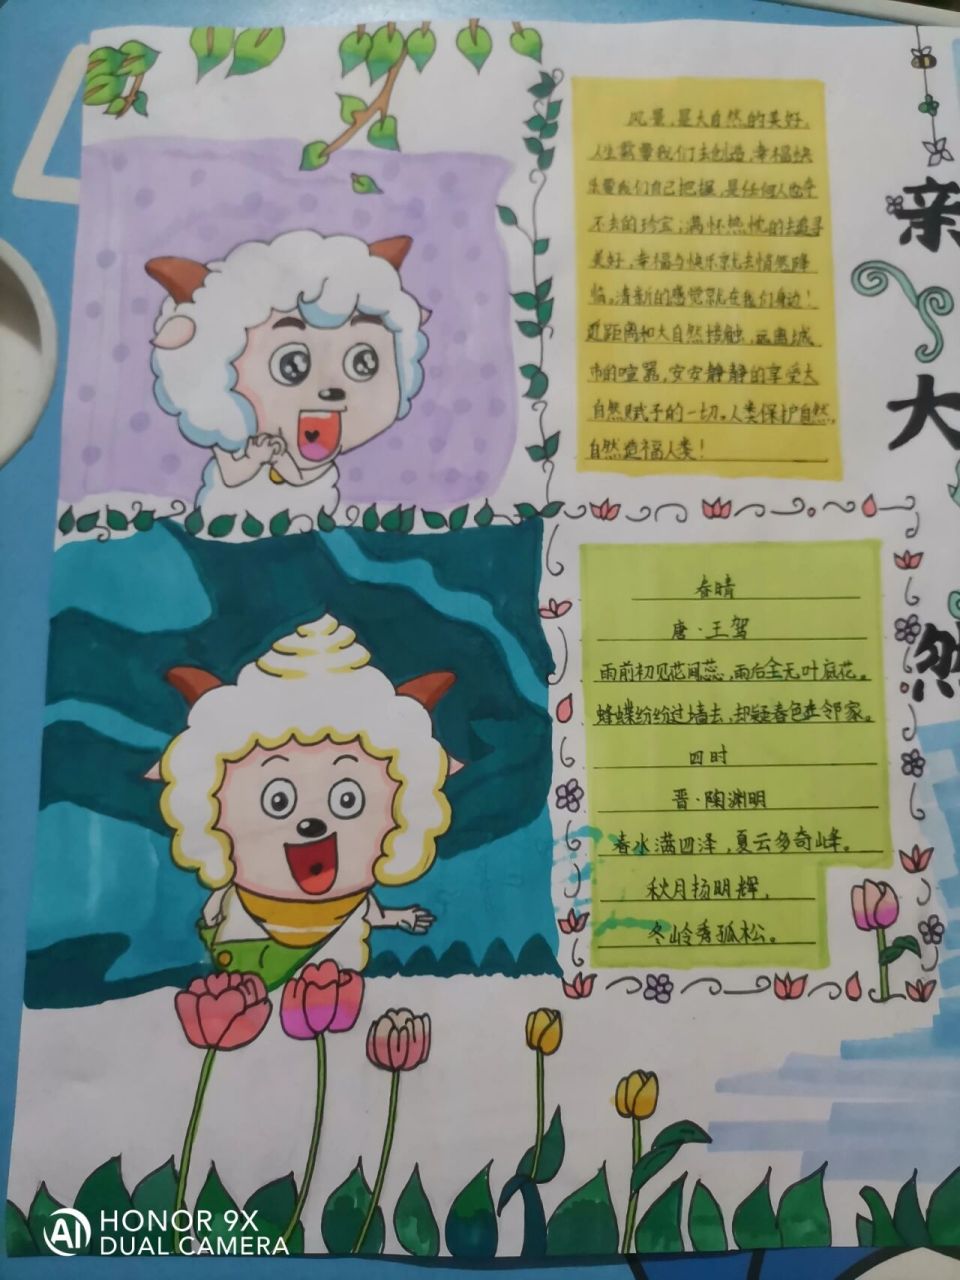 风景,是大自然的美好,
人生需要我们去创造,幸福快
乐要我们自己把握,是任何人也夺
不去的珍宝;满怀热忱的去追寻
美好,幸福与快乐就会悄然降
临。清新的感觉就在我们身边!
近距离和大自然接触,远离城
市的喧嚣,安安静静的享受大
自然赋予的一切。人类保护自然,
自然造福人类!
亲
大
然
春晴
唐·王驾
雨前初见花间蕊,雨后全无叶底花。
蜂蝶纷纷过墙去,却疑春色在邻家。
四时
晋·陶渊明
春水满四泽,夏云多奇峰。
秋月扬明辉,
冬岭秀孤松。
HONOR 9X
DUAL CAMERA
AI